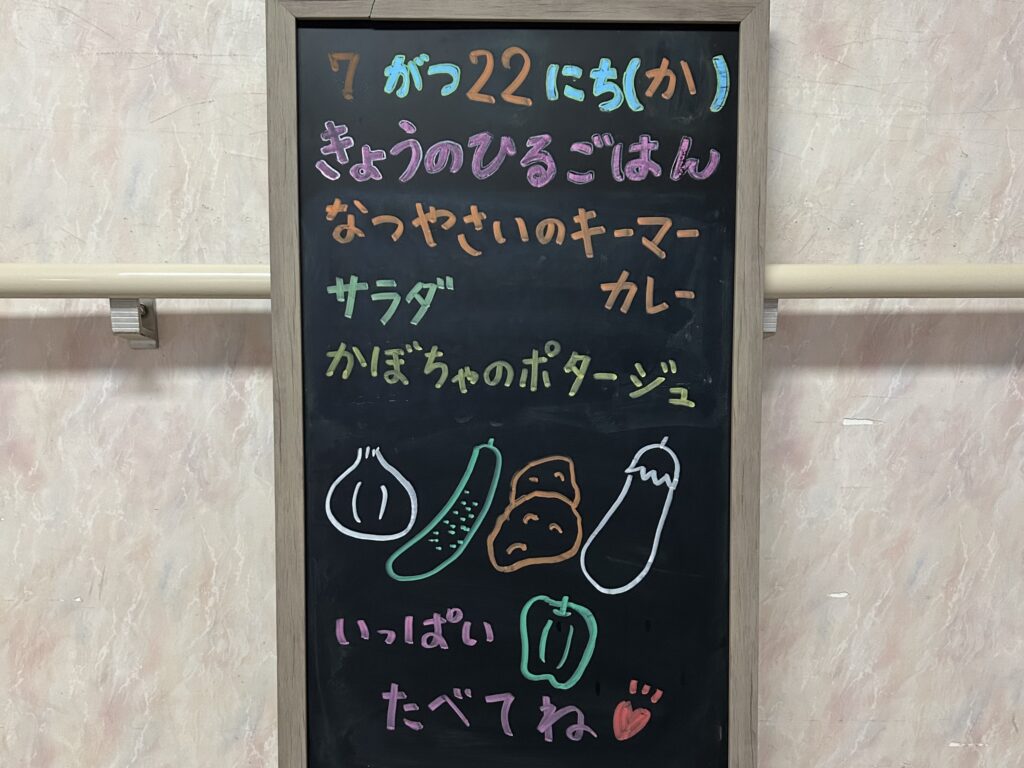 7がつ22にち(か)
きょうのひるごはん
なつやさいのキーマー
サラダ カレー
かぼちゃのポタージュ
いっぱい
たべてね